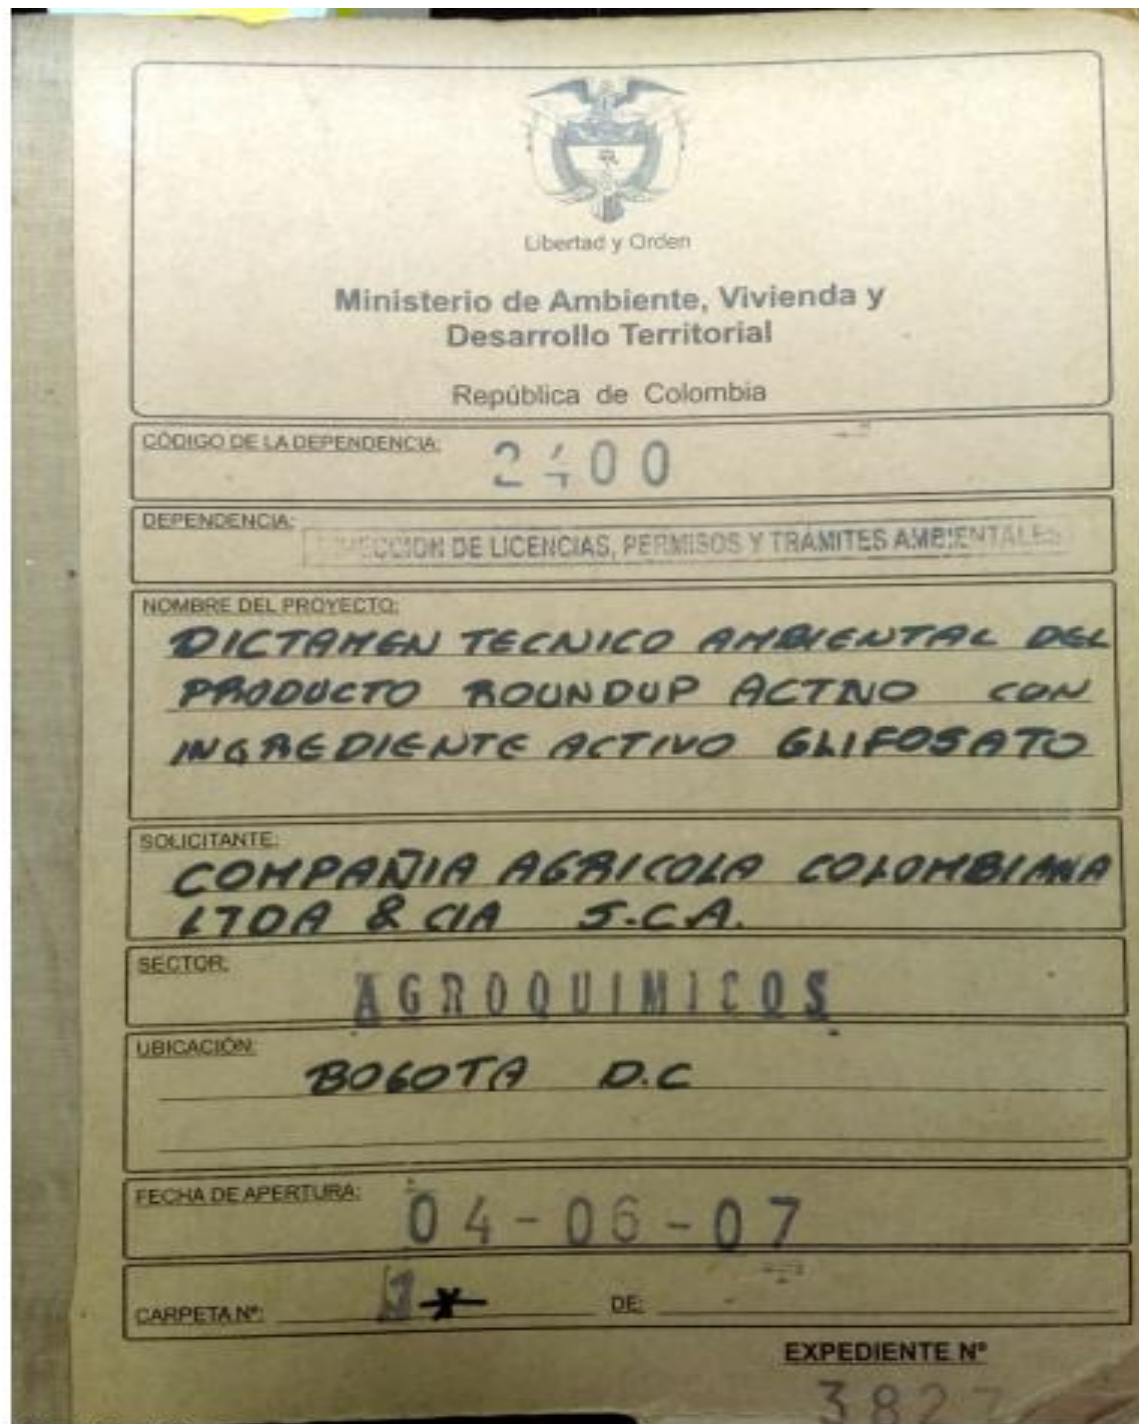 Libertad y Orden
Ministerio de Ambiente, Vivienda y
Desarrollo Territorial
República de Colombia
CÓDIGO DE LA DEPENDENCIA:
2400
DEPENDENCIA:
DIRECCION DE LICENCIAS, PERMISOS Y TRÁMITES AMBIENTALES
NOMBRE DEL PROYECTO:
DICTAMEN TECNICO AMBIENTAL DEL
PRODUCTO ROUNDUP ACTIVO CON
INGREDIENTE ACTIVO GLIFOSATO
SOLICITANTE:
COMPAÑIA AGRICOLA COLOMBIANA
LTDA & CIA S.C.A.
SECTOR:
AGROQUIMICOS
UBICACIÓN:
BOGOTA D.C
FECHA DE APERTURA:
04-06-07
CARPETA Nº: 1
DE:
EXPEDIENTE Nº
3827